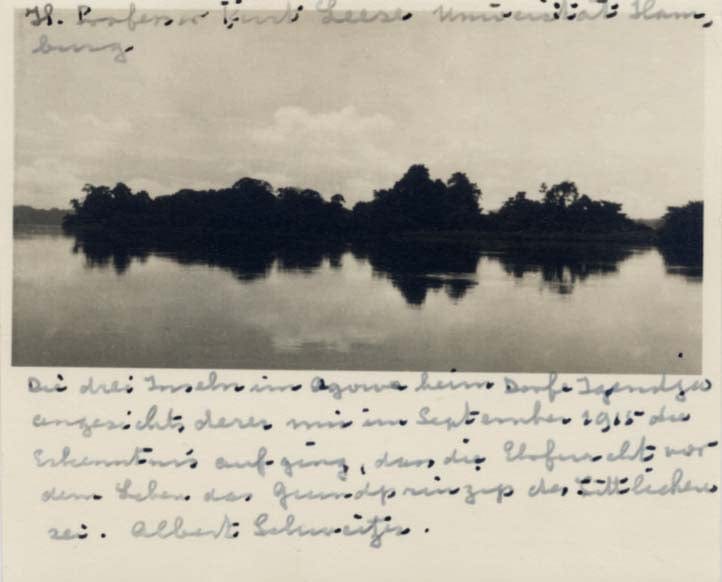 H. Professor Kurt Leese Universität Ham,
burg
Die drei Inseln im Ogowe beim Dorfe Igendja
angesichts derer mir im September 1915 die
Erkenntnis aufging, dass die Ehrfurcht vor
dem Leben das Grundprinzip des Sittlichen
sei. Albert Schweitzer.